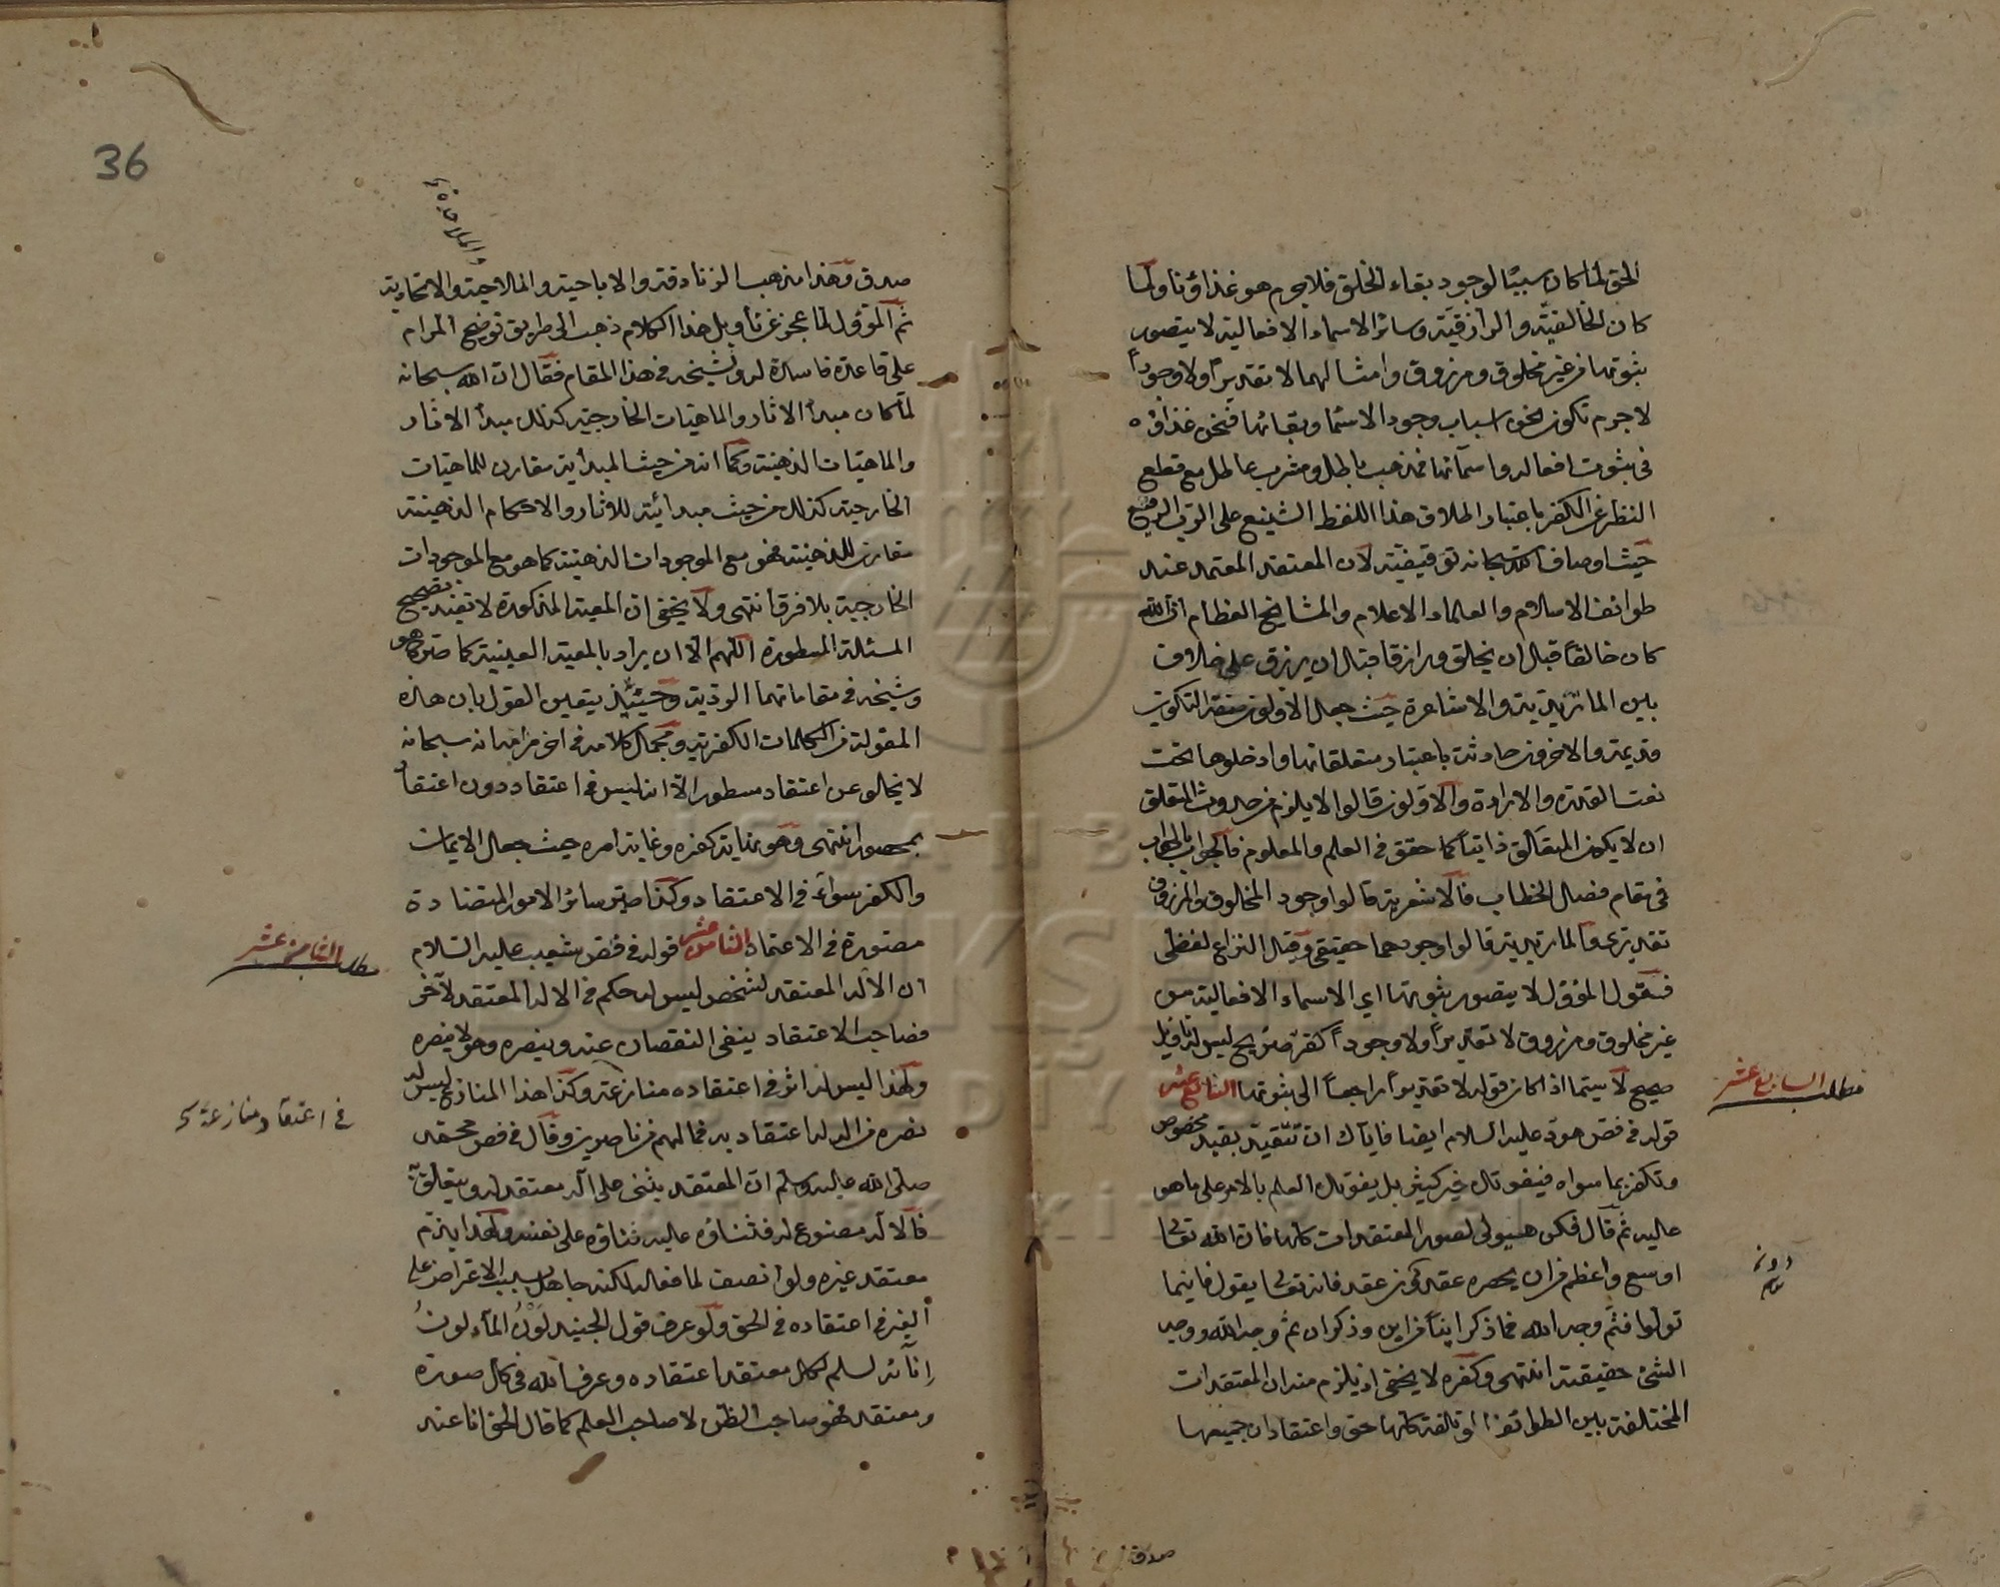 الحق لما كان سببًا لوجود بقاء الخلق فلا جرم هو غذاؤنا ولما
كان الخالقية والرازقية وسائر الاسماء الافعالية لا يتصور
ثبوتها من غير مخلوق ومرزوق وامثالهما لا تقديراً ولا وجوداً
لا جرم نكون نحن اسباب وجود الاسماء وبقائها فنحن غذاؤه
في ثبوت افعاله واسمائه فمذهب باطل ومشرب عاطل مع قطع
النظر عن الكفر باعتبار اطلاق هذا اللفظ الشنيع على الرب الرفيع
حيث اوصاف الله سبحانه توقيفية لان المعتقد المعتمد عند
طوائف الاسلام والعلماء الاعلام والمشايخ العظام ان الله
كان خالقا قبل ان يخلق ورازقا قبل ان يرزق على خلاف
بين الماتريدية والاشاعرة حيث جعل الاولون صفة التكوين
قديمة والاخرون حادثة باعتبار متعلقاتها وادخلوها تحت
نعت القدرة والارادة والاولون قالوا لا يلزم من حدوث المتعلق
ان لا يكون المتعلق ذاتيا كما حقق في العلم والمعلوم فالجواب بالجواب
في مقام فصل الخطاب فالاشعرية قالوا وجود المخلوق والمرزوق
تقديري والماتريدية قالوا وجودهما حقيقي وقيل النزاع لفظي
فقول المؤول لا يتصور ثبوتها اي الاسماء الافعالية من
غير مخلوق ومرزوق لا تقديراً ولا وجوداً كفر صريح ليس له تاويل
صحيح لا سيما اذا كان قوله لا تقديراً راجعاً الى ثبوتها السابع عشر
قوله في فص هود عليه السلام ايضا فاياك ان تتقيد بقيد مخصوص
وتكفر بما سواه فيفوتك خير كثير بل يفوتك العلم بالامر على ما هو
عليه ثم قال فكن هيولى لصور المعتقدات كلها فان الله تعالى
اوسع واعظم من ان يحصره عقد دون عقد فانه تعالى يقول فاينما
تولوا فثم وجه الله فما ذكر اينا من اين وذكر ان ثم وجه الله ووجه
الشئ حقيقته انتهى وكفره لا يخفى اذ يلزم منه ان المعتقدات
المختلفة بين الطوائف المؤتلفة كلها حق واعتقادات جميعها
مطلب السابع عشر
صدق
36
والملاحدة
صدق وهذا مذهب الزنادقة والاباحية والملاحدة والاتحادية
ثم المؤول لما عجز عن تأويل هذا الكلام ذهب الى طريق توضيح المرام
على قاعدة فاسدة له ولشيخه في هذا المقام فقال ان الله سبحانه
لما كان مبدأ الاثار والماهيات الخارجية كذلك مبدأ الاثار
والماهيات الذهنية وكما انه من حيث المبدأية مقارن للماهيات
الخارجية كذلك من حيث مبدائية للاثار والاحكام الذهنية
مقارن للذهنية فهو مع الموجودات الذهنية كما هو مع الموجودات
الخارجية بلا فرق انتهى ولا يخفى ان المعية المذكورة لا تفيد تصحيح
المسئلة المسطورة اللهم الا ان يراد بالمعية العينية كما صرح هو
وشيخه في مقاماتهما الردية وحينئذ يتعين القول بان هذه
المقولة من الكلمات الكفرية ومجمل كلامه في اخر مرامه انه سبحانه
لا يخلو عن اعتقاد مسطور الا انه ليس في اعتقاد دون اعتقاد
بمحصور انتهى وهو نهاية كفره وغاية امره حيث جعل الايمان
والكفر سواء في الاعتقاد وكذا صير سائر الامور المتضادة
متصورة في الاعتماد الثامن عشر قوله في فص شعيب عليه السلام
ان الاله المعتقد لشخص ليس له حكم في الاله المعتقد لآخر
فصاحب الاعتقاد ينفي النقصان عنه وينصره وهو لا ينصره
ولهذا ليس له اثر في اعتقاده منازعه وكذا هذا المنازع ليس له
نصره من الهه له اعتقاد به فما لهم من ناصرين وقال في فص محمد
صلى الله عليه وسلم ان المعتقد يثنى على اله معتقد له ويتعلق به
فالاله مصنوع له فثناؤه عليه ثناؤه على نفسه ولهذا يذم
معتقد غيره ولو انصف لما فعله لكنه جاهل بسبب الاعتراض على
الغير في اعتقاده في الحق ولو عرف قول الجنيد لَوْنُ الماء لونُ
انائه لسلم لكل معتقد اعتقاده وعرف الله في كل صورة
ومعتقد فهو صاحب الظن لا صاحب العلم كما قال الحق انا عند
مطلب الثامن عشر
في اعتقاد منازعه